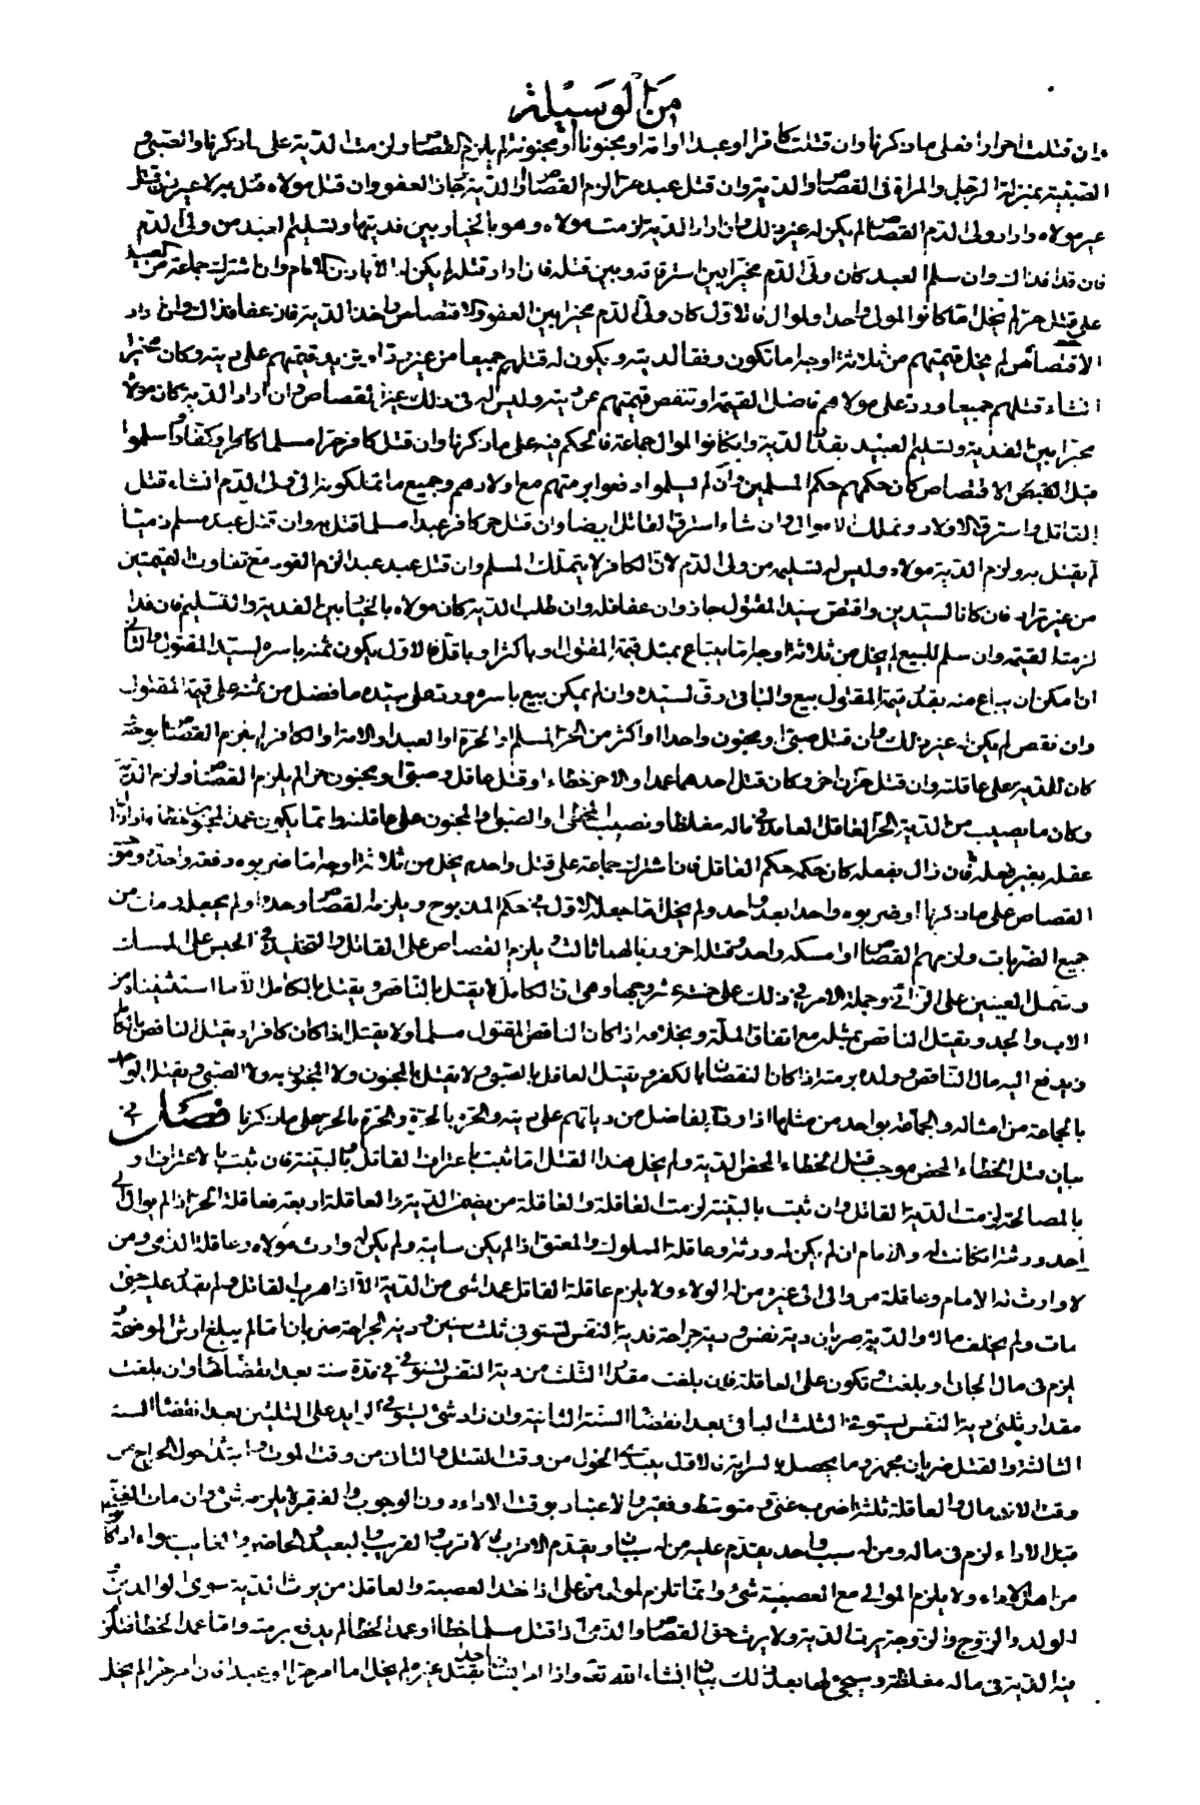 من الوسيلة
وان قتلت احرارا فعلى ما ذكرنا وان قتلت كافرا او عبدا او امة او مجنونا او مجنونة لم يلزم القصاص ولزمت الدية على ما ذكرنا والصبي و
الصبية بمنزلة الرجل والمراة في القصاص والدية وان قتل عبد حرا لزم القصاص او الدية وجاز العفو وان قتل مولاه قتل به ولا غير وان قتل
غير مولاه واراد ولي الدم القصاص لم يكن له غير ذلك وان اراد الدية لزمت مولاه وهو بالخيار بين فديتها وتسليم العبد من ولي الدم
فان فدا فذاك وان سلم العبد كان ولي الدم مخيرا بين استرقاقه وبين قتله فان اراد قتله لم يكن له الا باذن الامام وان اشترك جماعة من العبيد
على قتل حر لم يخل اما كانوا لمولى واحد او لموال فالاول كان ولي الدم مخيرا بين العفو والاقتصاص واخذ الدية فان عفا فذاك وان اراد
الاقتصاص لم يخل قيمتهم من ثلاثة اوجه اما تكون وفقا لديته ويكون له قتلهم جميعا من غير رد او يزيد قيمتهم على ديته وكان مخيرا
انشاء قتلهم جميعا ورد على مولاهم فاضل القيمة او تنقص قيمتهم عن ديته وليس له في ذلك غير القصاص وان اراد الدية كان مولاه
مخيرا بين الفدية وتسليم العبيد بقدر الدية وان كانوا لموال جماعة فالحكم فيه على ما ذكرنا وان قتل كافر حرا مسلما كافر او كفار اسلموا
قبل القبض الاقتصاص كان حكمهم حكم المسلمين وان لم يسلموا دفعوا برمتهم مع اولادهم وجميع ما يتملكونه الى ولي الدم انشاء قتل
القاتل واسترق الاولاد وتملك الاموال وان شاء استرق القاتل ايضا وان قتل حر كافر عبدا مسلما قتل به وان قتل عبد مسلم ذميا
لم يقتل به ولزم الدية مولاه وليس له تسليمه من ولي الدم لان الكافر لا يتملك المسلم وان قتل عبد عبدا لزم القود مع تفاوت القيمتين
من غير تراد فان كانا لسيدين واقتص سيد المقتول جاز وان عفا فله وان طلب الدية كان مولاه بالخيار بين الفدية والتسليم فان فدا
لزمته القيمة وان سلم للبيع لم يخل من ثلاثة اوجه اما يبتاع بمثل قيمة المقتول او باكثر او باقل فالاول يكون ثمنه باسره لسيد المقتول والثاني
ان امكن ان يباع منه بقدر قيمة المقتول بيع والباقي رق لسيده وان لم يمكن بيع باسره ورد على سيده ما فضل من ثمنه على قيمة المقتول
وان نقص لم يكن له غير ذلك وان قتل صبي او مجنون واحدا او اكثر من الحر المسلم او الحرة او العبد او الامة او الكافر لم يلزم القصاص بوجه
كان الدية على عاقلته وان قتل حران حرا وكان قتل احدهما عمدا والاخر خطاء او قتل عاقل وصبي او مجنون حرا لم يلزم القصاص ولزم الدية
وكان ما يصيب من الدية الحر العاقل العامد في ماله مغلظا ونصيب المخطى والصبي والمجنون على عاقلته وانما يكون عمد المجنون خطاء اذا زال
عقله بغير فعله فان زال بفعله كان حكمه حكم العاقل فان اشترك جماعة على قتل واحد لم يخل من ثلاثة اوجه اما ضربوه دفعة واحدة وهو
القصاص على ما ذكرنا او ضربوه واحدا بعد واحد ولم يخل اما جعله الاول في حكم المذبوح ويلزمه القصاص وحده او لم يجعله ومات من
جميع الضربات ولزمهم القصاص او امسكه واحد وقتله اخر وربا لهما ثالث ويلزم القصاص على القاتل والتخليد في الحبس على الممسك
وتسمل العينين على الرائي وجملة الامر في ذلك على خمسة عشر وجها وهي ان الكامل لا يقتل بالناقص ويقتل بالكامل الا ما استثنيناه من
الاب والجد ويقتل الناقص بمثله مع اتفاق الملة وبخلافه اذا كان الناقص المقتول مسلما ولا يقتل اذا كان كافرا ويقتل الناقص بالكامل
ويدفع اليه مال الناقص وولده برمته اذا كان النقصان بالكفر ويقتل العاقل بالصبي ولا يقتل بالمجنون ولا المجنون به ولا الصبي ويقتل الواحد
بالجماعة من امثاله والجماعة بواحد من مثلها اذا ردت الفاضل من دياتهم على ديته والحرة بالحرة والحرة بالحر على ما ذكرنا فصل في
بيان قتل الخطاء المحض موجب قتل الخطاء المحض الدية ولم يخل هذا القتل اما ثبت باعتراف القاتل او بالبينة فان ثبت بالاعتراف او
بالمصالحة لزمت الدية القاتل وان ثبت بالبينة لزمت العاقلة والعاقلة من يضمن الدية والعاقلة اربعة فعاقلة الحر اذا لم يوال الى
احد ورثته ان كانت له والامام ان لم يكن له ورثة وعاقلة المملوك والمعتق اذا لم يكن سايبة ولم يكن له وارث مولاه وعاقلة الذمي ومن
لا وارث له الامام وعاقلة من والى الى غيره من له الولاء ولا يلزم عاقلة القاتل عمدا شئ من الدية الا اذا هرب القاتل ولم يقدر عليه حتى
مات ولم يخلف مالا والدية ضربان دية نفس ودية جراحة فدية النفس تستوفى في ثلث سنين ودية الجراحة ضربان ما لم يبلغ ارش الموضحة
يلزم في مال الجاني وبلغت وتكون على العاقلة فان بلغت مقدار الثلث من دية النفس تستوفى في مدة سنة بعد انقضائها وان بلغت
مقدار ثلثي دية النفس يستوفى الثلث الباقي بعد انقضاء السنة الثانية وان زاد شئ يستوفى الزايد على الثلثين بعد انقضاء السنة
الثالثة والقتل ضربان مجهز وما يحصل بالسراية فالاول يبتدء الحول من وقت القتل والثاني من وقت الموت وابتداء حول الجراح من
وقت الاندمال والعاقلة ثلثة اضرب غني ومتوسط وفقير والاعتبار بوقت الاداء دون الوجوب والفقير لا يلزمه شئ وان مات الغني
قبل الاداء لزم في ماله ومن له سبب واحد يقدم عليه من له سببان ويقدم الاقرب فالاقرب والقريب والبعيد والحاضر والغايب سواء اذا كانا
من اهل الاداء ولا يلزم الموالي مع العصبة شئ وانما تلزم الموالي من على اذا خذا العصبة والعاقلة من يرث الدية سوى الوالدين
الولد والزوج والزوجة يرث الدية ولا يرث حق القصاص والذمي اذا قتل مسلما خطا او عمد الخطا لم يدفع برمته واما عمد الخطا فتلزم
فيه الدية في ماله مغلظة وسيجئ لها بعد ذلك بيان انشاء الله تعه واذا امر انسان احدا بقتل غيره لم يخل اما امر حرا او عبدا فان امر حرا لم يخل